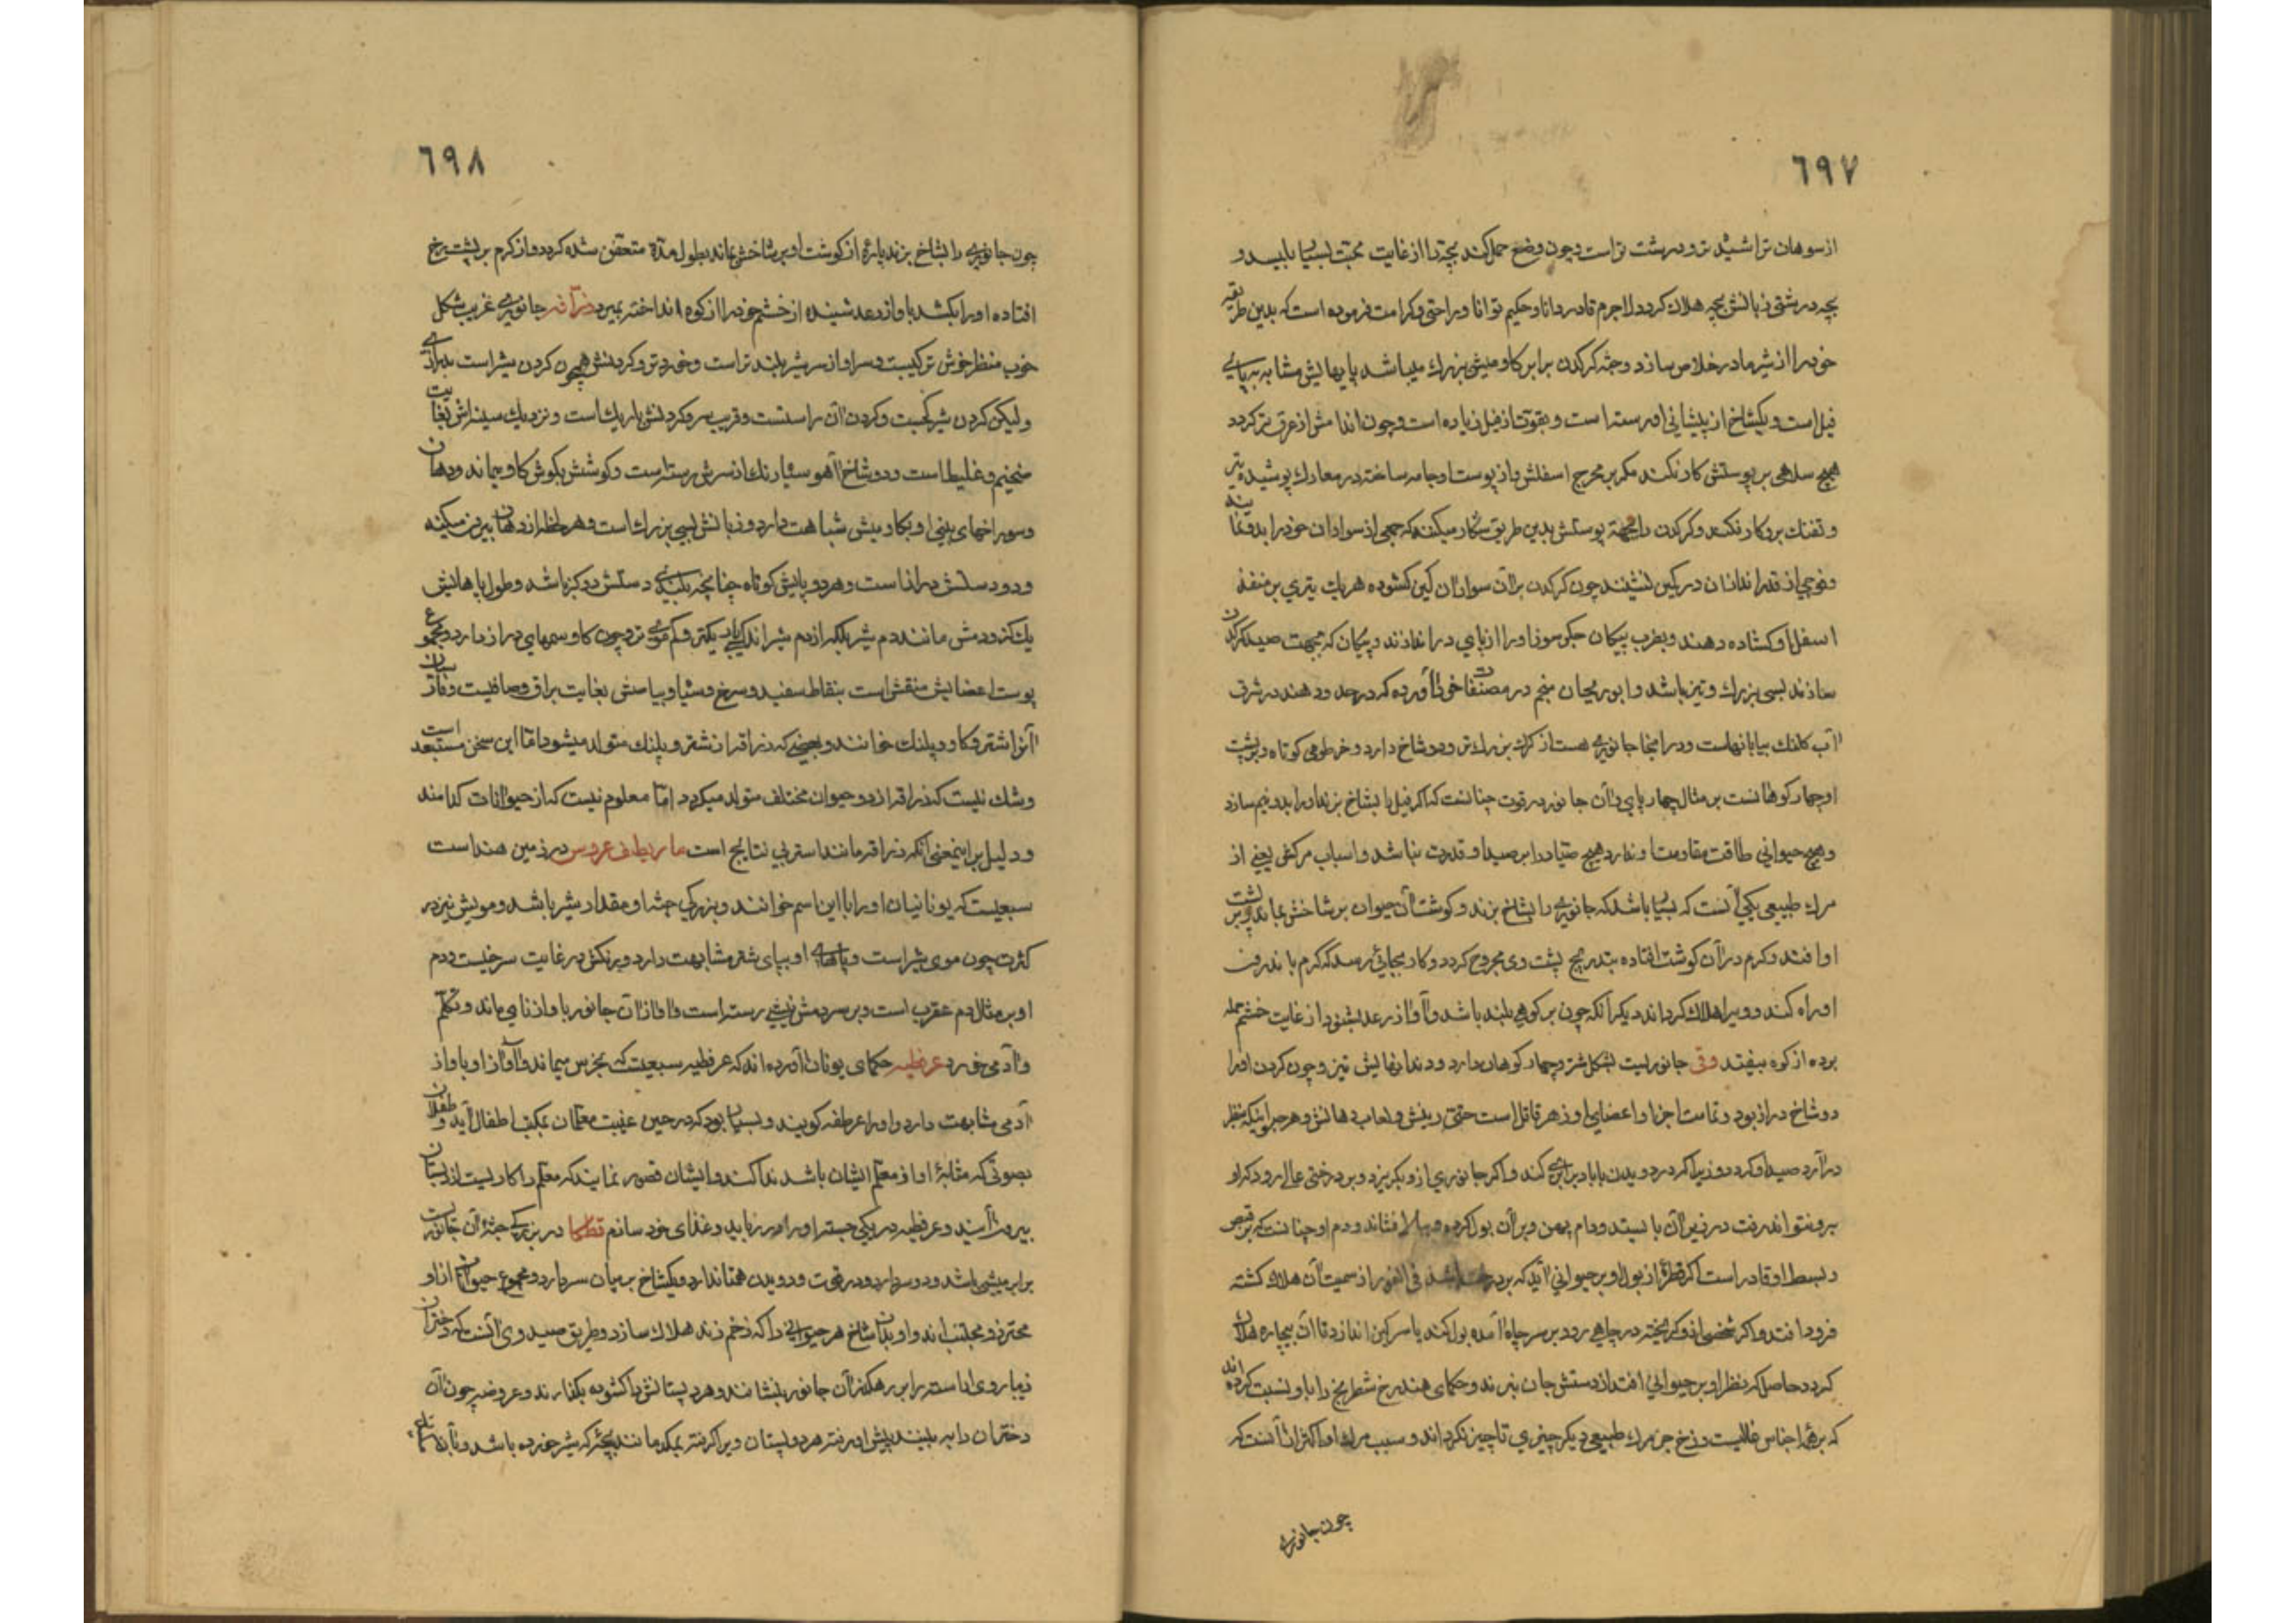 ٦٩٧
از سوهان تراشیده تر و درشت تر است و چون وضع حمل کند بچه را از غایت محبت بسیار بلیسد و
بچه درشتی زبانش بچه هلاک کردد لاجرم قادر دانا و حکیم توانا ویرا حتی وکرامت فرموده است که بدین طریقه
خود را از شر مادر خلاص سازد و جثه کرکدن برابر کاومیش بزرک میباشد پایهایش مشابه به پای
فیل است و یکشاخ از پیشانی او رسته است و بقوت از فیل زیاده است و چون اندامش از عرق تر کردد
هیچ سلاهی بر پوستش کار نکند مکر بر مخرج اسفلش و از پوست او جامه ساخته در معارک پوشیده تیر
و تفنک برو کار نکند و کرکدن را بجهة پوستش بدین طریق شکار میکنند که جمعی از سواران خود را بدو نمایند
و فوجی از قدراندازان در کمین نشینند چون کرکدن بر آن سواران کمین کشوده هریک تیری بر منفذ
اسفل او کشاده دهند و بضرب پیکان جکرسوز او را از پای در اندازند و پیکان که بجهت صید کرکدن
سازند بسی بزرک و تیز باشد و ابوریحان منجم در مصنفات خود آورده که در حدود هند در شرق
آب کلنک بیابانهاست و در آنجا جانوری هست از کرک بزرک تر و دو شاخ دارد و خرطومی کوتاه و بر پشت
او چهار کوهانست بر مثال چهارپای و آن جانور در قوت چنانست که اکر فیل را بشاخ بزند او را بدو نیم سازد
و هیچ حیوانی طاقت مقاومت او ندارد هیچ صیاد را بر صید او قدرت نباشد و اسباب مرکش یعنی از
مرک طبیعی یکی آنست که بسیار باشد که جانوری را بشاخ بزند و کوشت آن حیوان بر شاخش بماند و بر پشت
او افتد و کرم در آن کوشت افتاده بتدریج پشت وی مجروح کردد و کار بجائی رسد که کرم باندرون
او راه کند و ویرا هلاک کرداند دیکر آنکه چون بر کوهی بلند باشد و آواز رعد بشنود از غایت خشم حمله
برده از کوه بیفتد وقی جانوریست بشکل شتر و چهار کوهان دارد و دندانهایش تیز و چون کردن او را
دو شاخ دراز بود و تمامت اجزا و اعضای او زهر قاتل است حتی رینش و لعاب دهانش و هر حیوانیکه بنظر
در آرد صید او کردد و زیرا که در دویدن با باد برابری کند و اکر جانوری ازو بکریزد و بر درختی عالی رود که او
برو نتواند رفت در زیر آن بایستد و دام پهن و بر آن بول کرده و ببالا فشاند و دم او چنانست که بر قبض
و بسط او قادر است اکر قطرۀ از بول او بر حیوانی آید که بر درخت باشد فی الفور از سمیت آن هلاک کشته
فرود افتد و اکر شخصی ازو کریخته در چاهی رود بر سر چاه آمده بول کند یا سرکین اندازد تا آن بیچاره هلاک
کردد حاصل که نظر او بر حیوانی افتد از دستش جان نبرند و حکمای هند رخ شطرنج را باو نسبت کرده اند
که بر همه اجناس غالبست و رخ جز مرک طبیعی دیکر چیزی تاچیز نکرداند و سبب مرک او اکثر آن است که
چون جانوری
٦٩٨
چون جانوری را بشاخ بزند پارۀ از کوشت او بر شاخش بماند بطول مدة متعفن شده کردد و از کرم بر پشت رخ
افتاده او را بکشد یا واز رعد شنیده از خشم خود را از کوه انداخته بمیرد زرافه جانوری غریب شکل
خوب منظر خوش ترکیبست و سر او از سر شیر بلند تر است و خورد تر و کردنش همچون کردن شیر است بدرازی
ولیکن کردن شیر کجست و کردن آن راستست و قریب سر و کردنش باریک است و نزدیک سینه اش بغایت
ضخیم و غلیظ است و دو شاخ آهو سیاه رنک از سرش رسته است و کوشش بکوش کاو میماند و دهان
و سوراخهای بینی او بکاومیش شباهت دارد و زبانش بسی بزرک است و هر لحظه از دهان بیرون میکند
و دو دستش دراز است و هر دو پایش کوتاه چنانچه بلندی دستش دو کز باشد و طول پاهایش
یک کز و دمش مانند دم شیر بلکه از دم شیر اندکی باریکتر و کم موی تر و چون کاو سمهای دراز دارد و مجموع
پوست اعضایش منقش است بنقاط سفید و سرخ و سیاه و بیاضش بغایت براق و صافیست و فارسیان
آنرا اشتر و کاو و پلنک خوانند و بعضی که زرافه از شتر و پلنک متولد میشود اما این سخن مستبعد است
و شک نیست که زرافه از دو حیوان مختلف متولد میکردد اما معلوم نیست که از حیوانات کدامند
و دلیل بر اینمعنی آنکه زرافه مانند استر بی نتایج است ما ریطانی عروس در زمین هند است
سبعیست که یونانیان او را با این اسم خوانند و بزرکی جثه او مقدار شیر باشد و مویش نیز در
کثرت چون موی شیر است و پاهای او بپای شتر مشابهت دارد و رنکش در غایت سرخیست و دم
او بر مثال دم عقرب است و بر سر دمش نیشی رسته است و آواز آن جانور باواز نای ماند و تکلم
و آدمی خورد عرفطیه حکمای یونان آورده اند که عرفطیه سبعیست که بخرس میماند و آواز او باواز
آدمی مشابهت دارد و او را عرطفه کویند و بسیار بود که در حین غیبت معلمان بمکتب اطفال آید و طفلان
بصوتی که مشابۀ آواز معلم ایشان باشد ندا کند و ایشان تصور نمایند که معلم را کاریست از دبستان
بیرون آیند و عرفطیه در یکی جسته او را در رباید و غذای خود سازد قطرکا در بزرکی جثه آن جانوریست
برابر میشی باشد و دو سر دارد و در قوت و دویدن همتا ندارد و یکشاخ بر میان سر دارد و مجموع حیوانات از او
محترز و مجتنب اند و او بدان شاخ هر حیوانی را که زخم زند هلاک سازد و طریق صید وی آنست که دختران
زیبا روی آراسته برابر رهکذر آن جانور بنشانند و هر دو پستانش را کشوده بکذارند و عروضه چون آن
دختران را به بیند پیش او رفته هر دو پستان ویرا کرفته بمکد مانند بچۀ که شیر خورده باشد و تا بدان